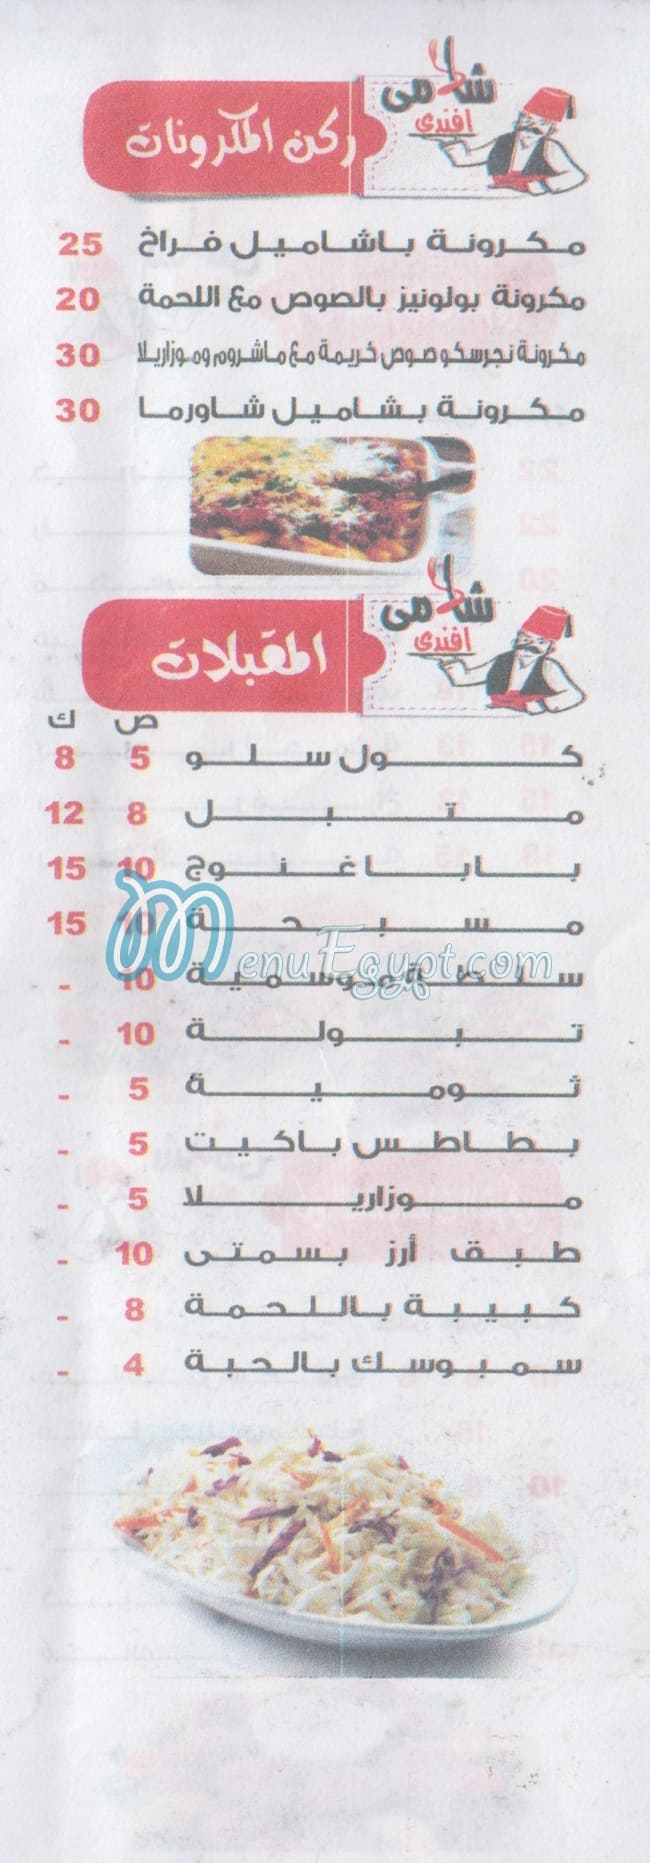 شامى
افندى
ركن المكرونات
مكرونة باشاميل فراخ 25
مكرونة بولونيز بالصوص مع اللحمة 20
مكرونة نجرسكو صوص كريمة مع ماشروم وموزاريلا 30
مكرونة بشاميل شاورما 30
شامى
افندى
المقبلات
ص ك
كول سلو 5 8
متبل 8 12
بابا غنوج 10 15
مسبحة 10 15
MenuEgypt.com
سلطة موسمية 10 -
تبولة 10 -
ثومية 5 -
بطاطس باكيت 5 -
موزاريلا 5 -
طبق أرز بسمتى 10 -
كبيبة باللحمة 8 -
سمبوسك بالحبة 4 -